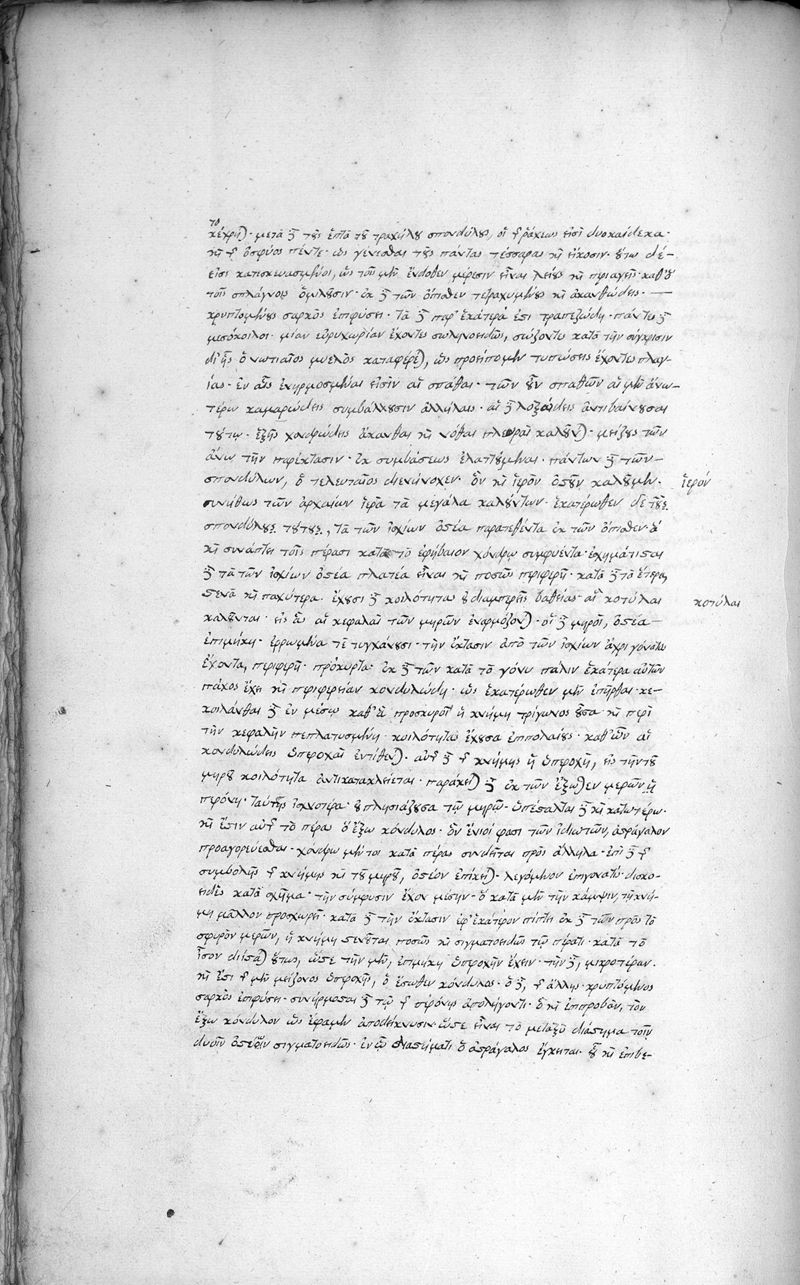 το
κέχρη)· μετὰ δὲ τοὺς ἑπτὰ τοῦ τραχήλου σπονδύλους, οἱ τῆς ῥάχεως εἰσὶ δυοκαίδεκα·
καὶ τῆς ὀσφύος πέντε· ὡς γίνεσθαι τοὺς πάντας τέσσαρας καὶ εἴκοσιν· οὕτω δέ
εἰσι κατεσκευασμένοι, ὡς τοῖς μὲν ἔνδοθεν μέρεσιν εἶναι λείους καὶ περιαγεῖς· καθ' ὃ
τοῖς σπλάγχνοις ὁμιλοῦσιν· ἐκ δὲ τῶν ὄπιθεν τετραχυμένους καὶ ἀκανθώδεις·
κρυπτομένους σαρκὸς ἐπιφύσει· τὰ δὲ παρ' ἑκάτερά εἰσι τραπεζώδη· πάντες δὲ
μεσόκοιλοι· μίαν εὐρυχωρίαν ἔχοντες σωληνοειδῶς, σώζοντες κατὰ τὴν σύγκρισιν
δι' ἧς ὁ νωτιαῖος μυελὸς καταφέρε), ὡς προείπομεν τυπώσεις ἔχοντες πλαγ-
ίας· ἐν αἷς ἐνηρμοσμέναι εἰσὶν αἱ σπάθαι· τῶν οὖν σπαθῶν αἱ μὲν ἀνω-
τέρω καμαρώδεις συμβάλλουσιν ἀλλήλαις· αἱ δὲ λοξοειδεῖς ἀντιβαίνουσαι
τούτῳ· ἑξῆς χονδρώδεις ἄκανθαι καὶ νόθαι πλευραὶ καλοῦν)· μείζους τῶν
ἄνω τὴν παρέκτασιν· ἐκ συμβάσεως ἐλαττούμεναι· πάντων δὲ τῶν
σπονδύλων, ὁ τελευταῖος διενήνοχεν· ὃν καὶ ἱερὸν ὀστοῦν καλοῦμεν·
συνήθως τῶν ἀρχαίων ἱερὰ τὰ μεγάλα καλούντων· ἑκατέρωθεν δὲ τοὺς
σπονδύλους τούτους, τὰ τῶν ἰσχίων ὀστέα παρατεθέντα ἐκ τῶν ὄπιθεν· ἃ
καὶ συνάπτει τοῖς πέρασι κατὰ τὸ ἐφήβαιον χόνδρῳ συμφυέντα· ἐσχημάτισται
δὲ τὰ τῶν ἰσχίων ὀστέα πλατέα εἶναι καὶ ποσῶς περιφερῆ· κατὰ δὲ τὸ ἕτερον,
στενὰ καὶ παχύτερα· ἔχουσι δὲ κοιλότητας οὐ διαμπερεῖς βαθείας· αἳ κοτύλαι
καλοῦνται· εἰς ἃς αἱ κεφαλαὶ τῶν μηρῶν ἐναρμόζον)· οἱ δὲ μηροὶ, ὀστέα
ἐπιμήκη· ἐρρωμένα τε τυγχάνουσι· τὴν ἔκτασιν ἀπὸ τῶν ἰσχίων ἄχρι γόνατος
ἔχοντα, περιφερῆ· πρόκυρτα· ἐκ δὲ τῶν κατὰ τὸ γόνυ πάλιν ἑκάτερα αὐτῶν
πάχος ἔχει καὶ περιφέρειαν κονδυλώδη· ὡς ἑκατέρωθεν μὲν ἐπῆρθαι· κε-
κοιλάνθαι δὲ ἐν μέσῳ καθ' ὃ προσκυροῖ ἡ κνήμη τρίγωνος οὖσα καὶ περὶ
τὴν κεφαλὴν πεπλατυσμένη· κοιλότητας ἔχουσα ἐπιπολαίους· καθ' ὧν αἱ
κονδυλώδεις ὑπεροχαὶ ἐντίθεν)· αὐτῆς δὲ τῆς κνήμης ἡ ὑπεροχὴ, εἰς τὴν τοῦ
μηροῦ κοιλότητα ἀντικατακλείεται· παράκει) δὲ ἐκ τῶν ἔξωθεν μερῶν ἡ
περόνη· ταύτης ἰσχνοτέρα· οὐ πλησιάζουσα τῷ μηρῷ· ὑπέσταλται δὲ καὶ κατωτέρω·
καὶ ἔστιν αὐτῆς τὸ πέρας ὁ ἔξω κόνδυλος· ὃν ἔνιοί φασι τῶν ἰδιωτῶν, ἀστράγαλον
προσαγορεύεσθαι· χόνδρῳ μέντοι κατὰ πέρας συνδεῖται πρὸς ἄλληλα· ἐπὶ δὲ τῆς
συμβολῆς τῆς κνήμης καὶ τοῦ μηροῦ, ὀστέον ἐπίκει)· λεγόμενον ἐπιγονατίς· δισκο-
ειδὲς κατὰ σχῆμα· τὴν σύμφυσιν ἔχον μέσην· ὃ κατὰ μὲν τὴν κάμψιν, τῇ κνή-
μῃ μᾶλλον προσχωρεῖ· κατὰ δὲ τὴν ἔκτασιν ἐφ' ἑκάτερον πίπτει ἐκ δὲ τῶν πρὸς τὸ
σφυρὸν μερῶν, ἡ κνήμη στενοῦται ποσῶς καὶ σιγματοειδῶς τῷ πέρατι· κατὰ τὸ
ἶσον διίστα) οὕτως, ὥστε τὴν μὲν, ἐπιμήκη ὑπεροχὴν ἔχειν· τὴν δὲ, μικροτέραν·
καὶ ἔστι τῆς μὲν μείζονος ὑπεροχῆς, ὁ ἔσωθεν κόνδυλος· ὁ δὲ, τῆς ἄλλης· κρυπτόμενος
σαρκὸς ἐπιφύσει· συνήρμοσται δὲ τῷ τῆς περόνης ἀπολήγοντι· ὃ καὶ ἐπιπροβὰν, τὸν
ἔξω κόνδυλον ὡς ἔφαμεν ἀποδείκνυσιν· ὥστε εἶναι τὸ μεταξὺ διάστημα τοῖν
δυοῖν ὀστέοιν σιγματοειδῶς· ἐν ᾧ διαστήματι ὁ ἀστράγαλος ἔγκειται· οὗ καὶ ἐπιβε-
ἱερόν
κοτύλαι